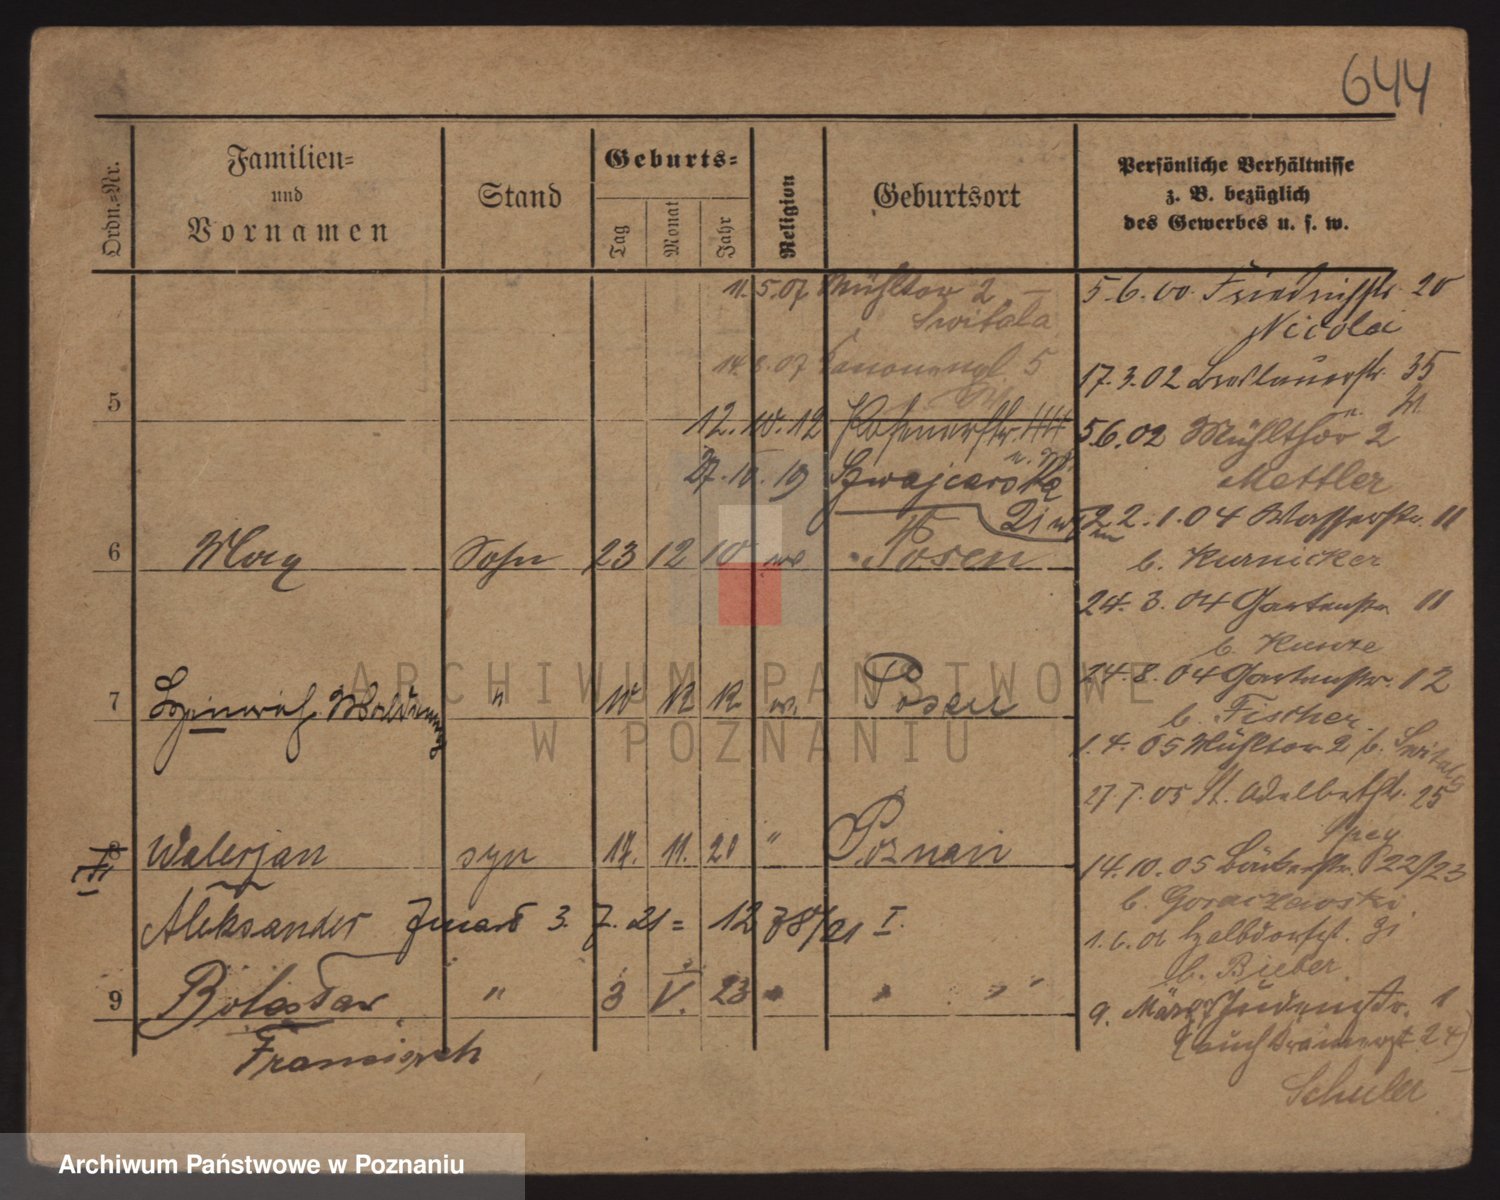 644
Ordn.-Nr.
Familien-
und
Vornamen
Stand
Geburts-
Tag
Monat
Jahr
Religion
Geburtsort
Persönliche Verhältnisse
z. B. bezüglich
des Gewerbes u. s. w.
11.5.07 Mühltor 2 —
Switala
14.8.07 5
5
12.10.12 44
27.10.19 Szwajcarska
6 Sohn 23 12 10 Posen
7 Waldemar " 10 12 12 Posen
8 Walerjan syn 17. 11. 20 " Poznań
Aleksander zmarł 3. 7. 21 = I.
9 Bolesław " 3 V. 23 " "
Franciszek
5.6.00. Friedrichstr. 20
Nicolai
17.3.02 Breslauerstr. 35
5.6.02 Mühlthor 2
Mettler
22.1.04 Wasserstr. 11
b. Kurnicker
24.3.04 Gartenstr. 11
b. Kunze
24.8.04 Gartenstr. 12
b. Fischer
1.4.05 Mühltor 2 b. Switala
27.7.05 St. Adalbertstr. 25
14.10.05 Bäckerstr. 22/23
b.
1.6.06 Halbdorfst. 31
b. Bieber
9. März Judenstr. 1
(auch 24)
Schuler
ARCHIWUM PAŃSTWOWE
W POZNANIU
Archiwum Państwowe w Poznaniu